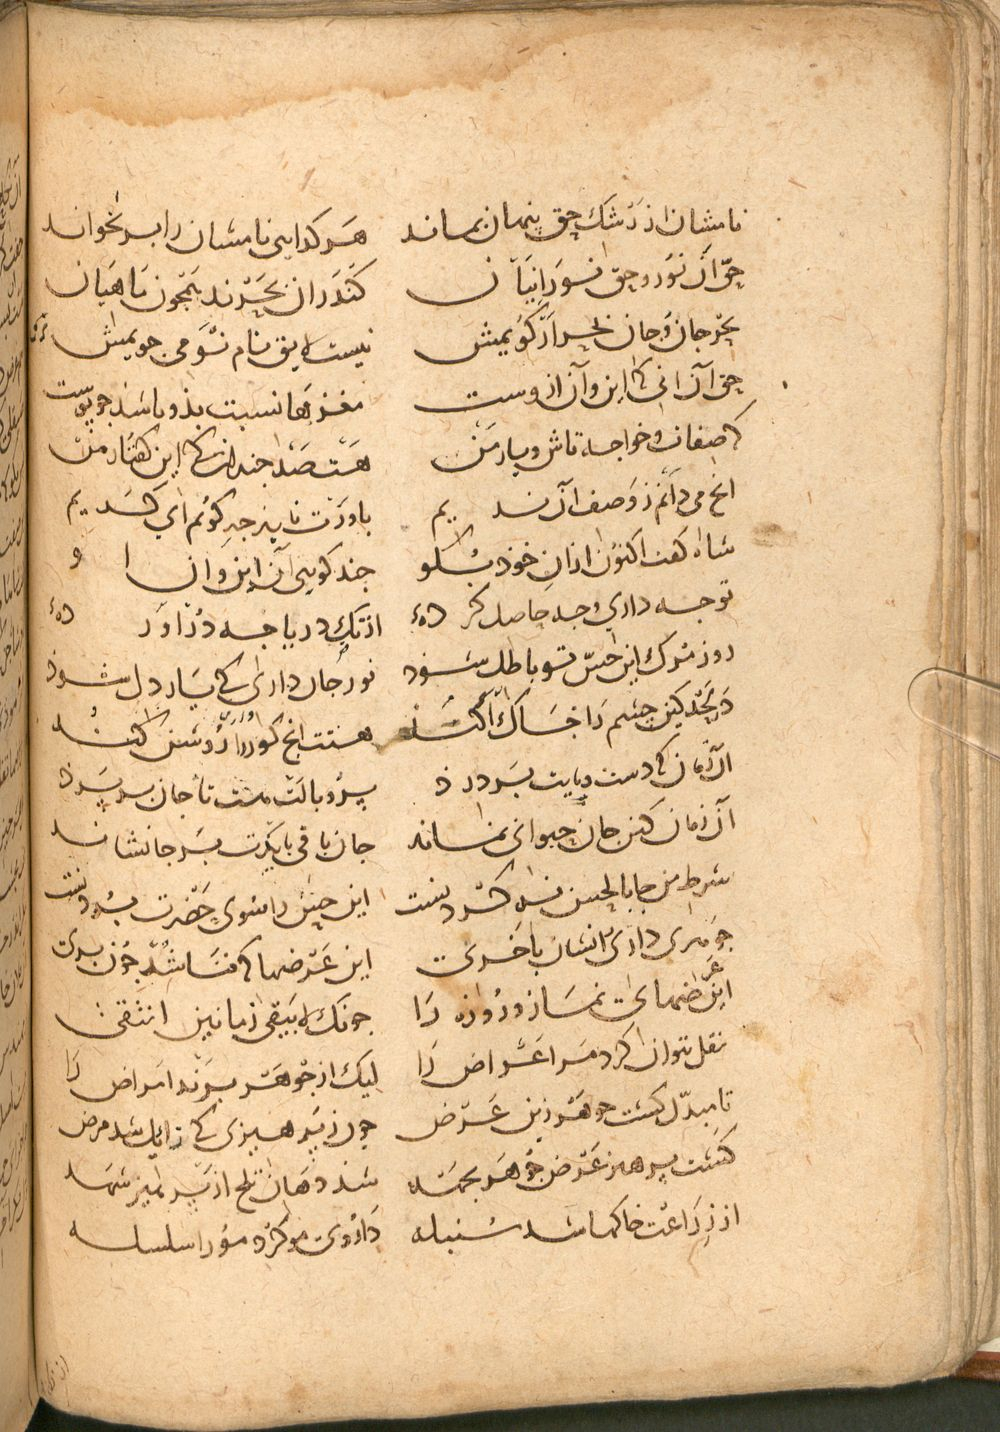 نامشان از رشک حق پنهان بماند هر کدایی نامشان را بر نخواند
حق آن نور و حق نورانیان کندران بحرند همچون ماهیان
بحر جان و جان بحر ار گویمش نیست لایق نام نو می جویمش
حق آن آنی که این و آن ازوست مغزها نسبت بذو باشذ چو پوست
که صفات خواجه تاش و یار من هست صد چندان که این کفتار من
انج می دانم ز وصف آن ندیم باورت ناید چه کویم ای کریم
شاه کفت اکنون ازان خوذ بکو چند کویی آن این و آن او
تو چه داری و چه حاصل کرده از تک دریا چه در آورده
روز مرک این حس تو باطل شوذ نور جان داری که یار دل شوذ
در لحد کین چشم را خاک آکند هستت انج کور را روشن کند
آن زمان که دست و پایت بر درذ پر و بالت هست تا جان بر پرذ
آن زمان کین جان حیوانی نماند جان باقی بایدت بر جا نشاند
شرط من جا بالحسن نه کردنست این حسن را سوی حضرت بردنست
جوهری داری ز انسان یا خری این عرضها که فنا شد چون بری
این عرضهای نماز و روزه را چونک لا یبقی زمانین انتفی
نقل نتوان کرد مر اعراض را لیک از جوهر برند امراض را
تا مبدل کشت جوهر زین عرض چون ز پرهیزی که زایل شد مرض
کشت پرهیز عرض جوهر بجهد شد دهان تلخ از پرهیز شهد
از زراعت خاکها شد سنبله داروی مو کرد مو را سلسله